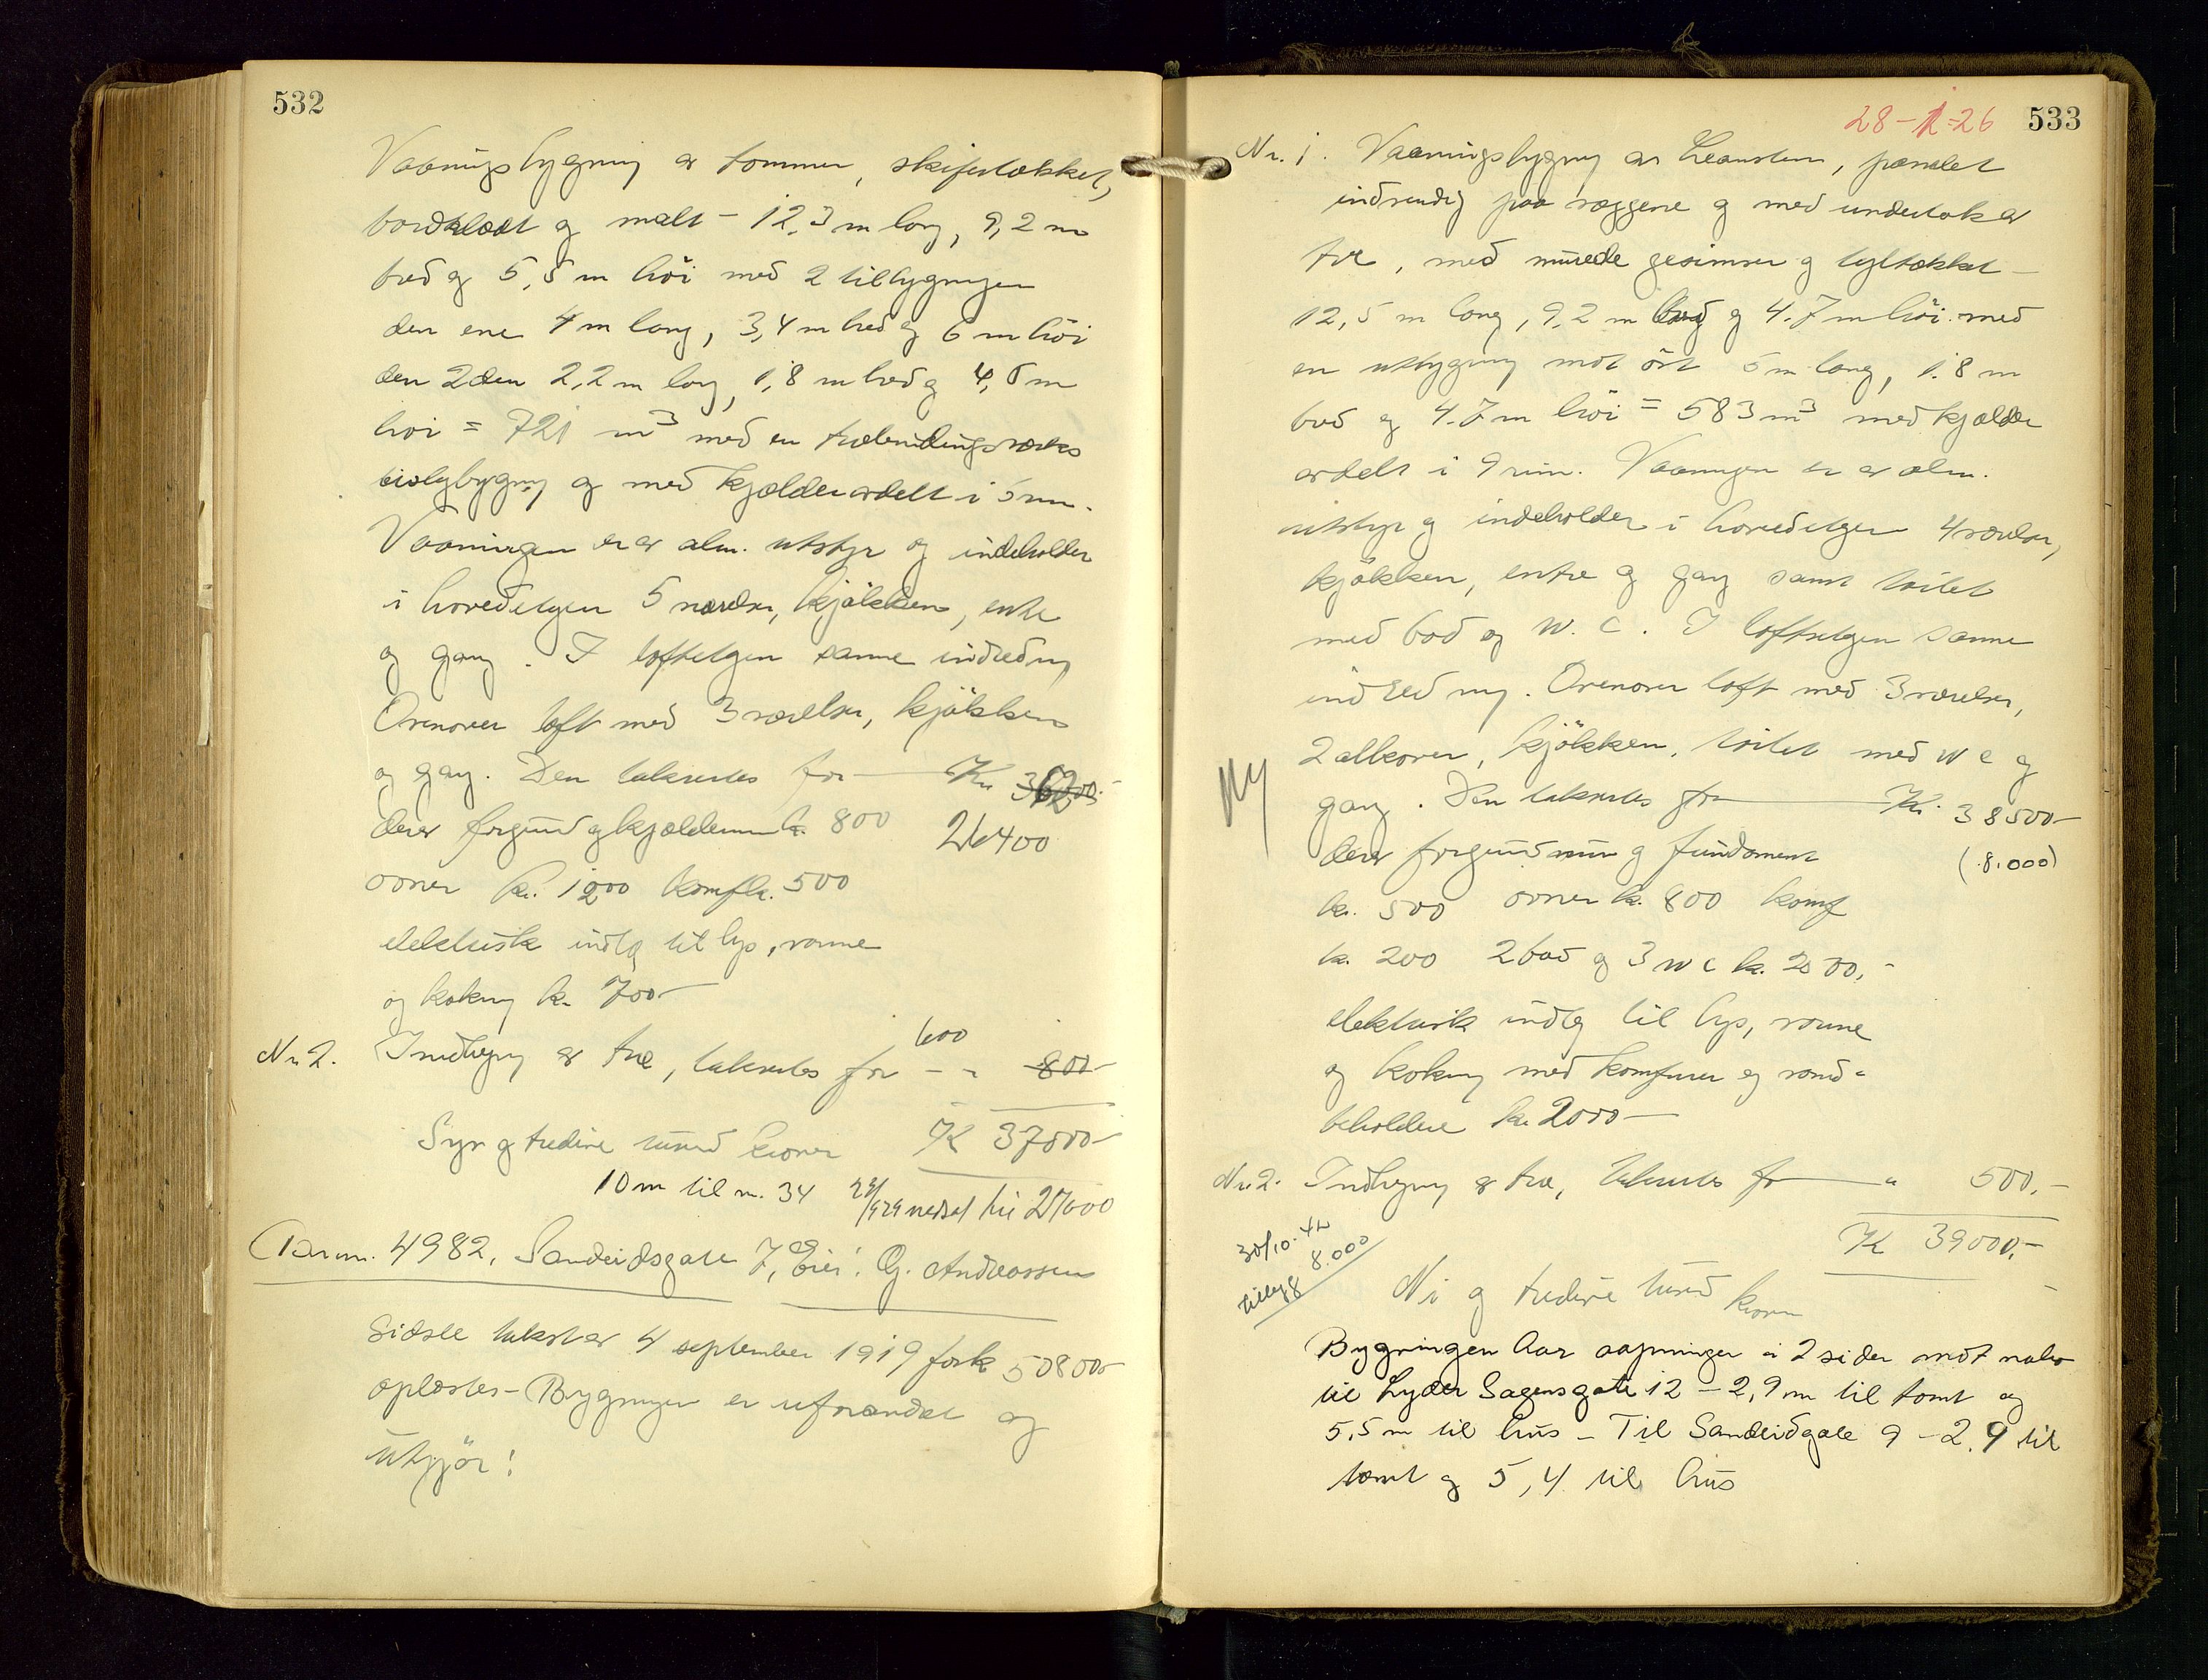 532
Vaaningsbygning av tømmer, skifertækket,
bordklædt og malt - 12,3 m lang, 9,2 m
bred og 5,5 m høi med 2 tilbygninger
den ene 4 m lang, 3,4 m bred og 6 m høi
den 2den 2,2 m lang, 1,8 m bred og 4,5 m
høi = 721 m³ med en træbindingsverks
bislagbygning og med kjælder avdelt i 5 rum.
Vaaningen er av alm. utstyr og indeholder
i hovedetagen 5 værelser, kjøkken, entre
og gang. I loftetagen samme indredning
Ovenover loft med 3 værelser, kjøkken
og gang. Den takseres for Kr 36200.-
derav forgrund og kjældermur kr. 800 26400
ovner kr. 1200 komfr. 500
elektrisk indlæg til lys, varme
og kokning kr. 700-
600
Nr 2. Indhegning av træ, takseres for - " 800-
Syv og tredive tusind kroner Kr 37000-
10 m til nr. 34 nedsat til 27000
Bar nr. 4982, Sandeidsgate 7, Eier: Og. Andreassen
Sidste takst av 4 september 1919 for k 50800-
oplæstes - Bygningen er uforandret og
utgjør:
28-1-26 533
Nr. 1. Vaaningsbygning av Leansten, panelet
indvendig paa væggene og med undertak av
træ, med murede gesimser og tegltækket -
12,5 m lang, 9,2 m bred og 4.7 m høi med
en utbygning mot øst 5 m lang, 1.8 m
bred og 4.7 m høi = 583 m³ med kjælder
avdelt i 9 rum. Vaaningen er av alm.
utstyr og indeholder i hovedetagen 4 værelser,
kjøkken, entre og gang samt toilet
med bad og W.C. I loftsetagen samme
indredning. Ovenover loft med 3 værelser,
2 alkover, kjøkken, toilet med W C og
Ny
gang. Den takseres for Kr. 38500-
derav forgrundmur og fundament (8.000)
kr. 500 ovner kr. 800 komf
kr. 200 2 bad og 3 W C kr. 2500,-
elektrisk indlæg til lys, varme
og kokning med komfurer og vand-
beholdere kr 2000-
Nr 2. Indhegning av træ, takseres for " 500,-
Kr 39000,-
30/10-42
tillegg 8.000
Ni og tredive tusind kroner
Bygningen har aapninger i 2 sider mot nabo
til Lyder Sagensgate 12 - 2,9 m til tomt og
5,5 m til hus - Til Sandeidgate 9 - 2,9 til
tomt og 5,4 til hus